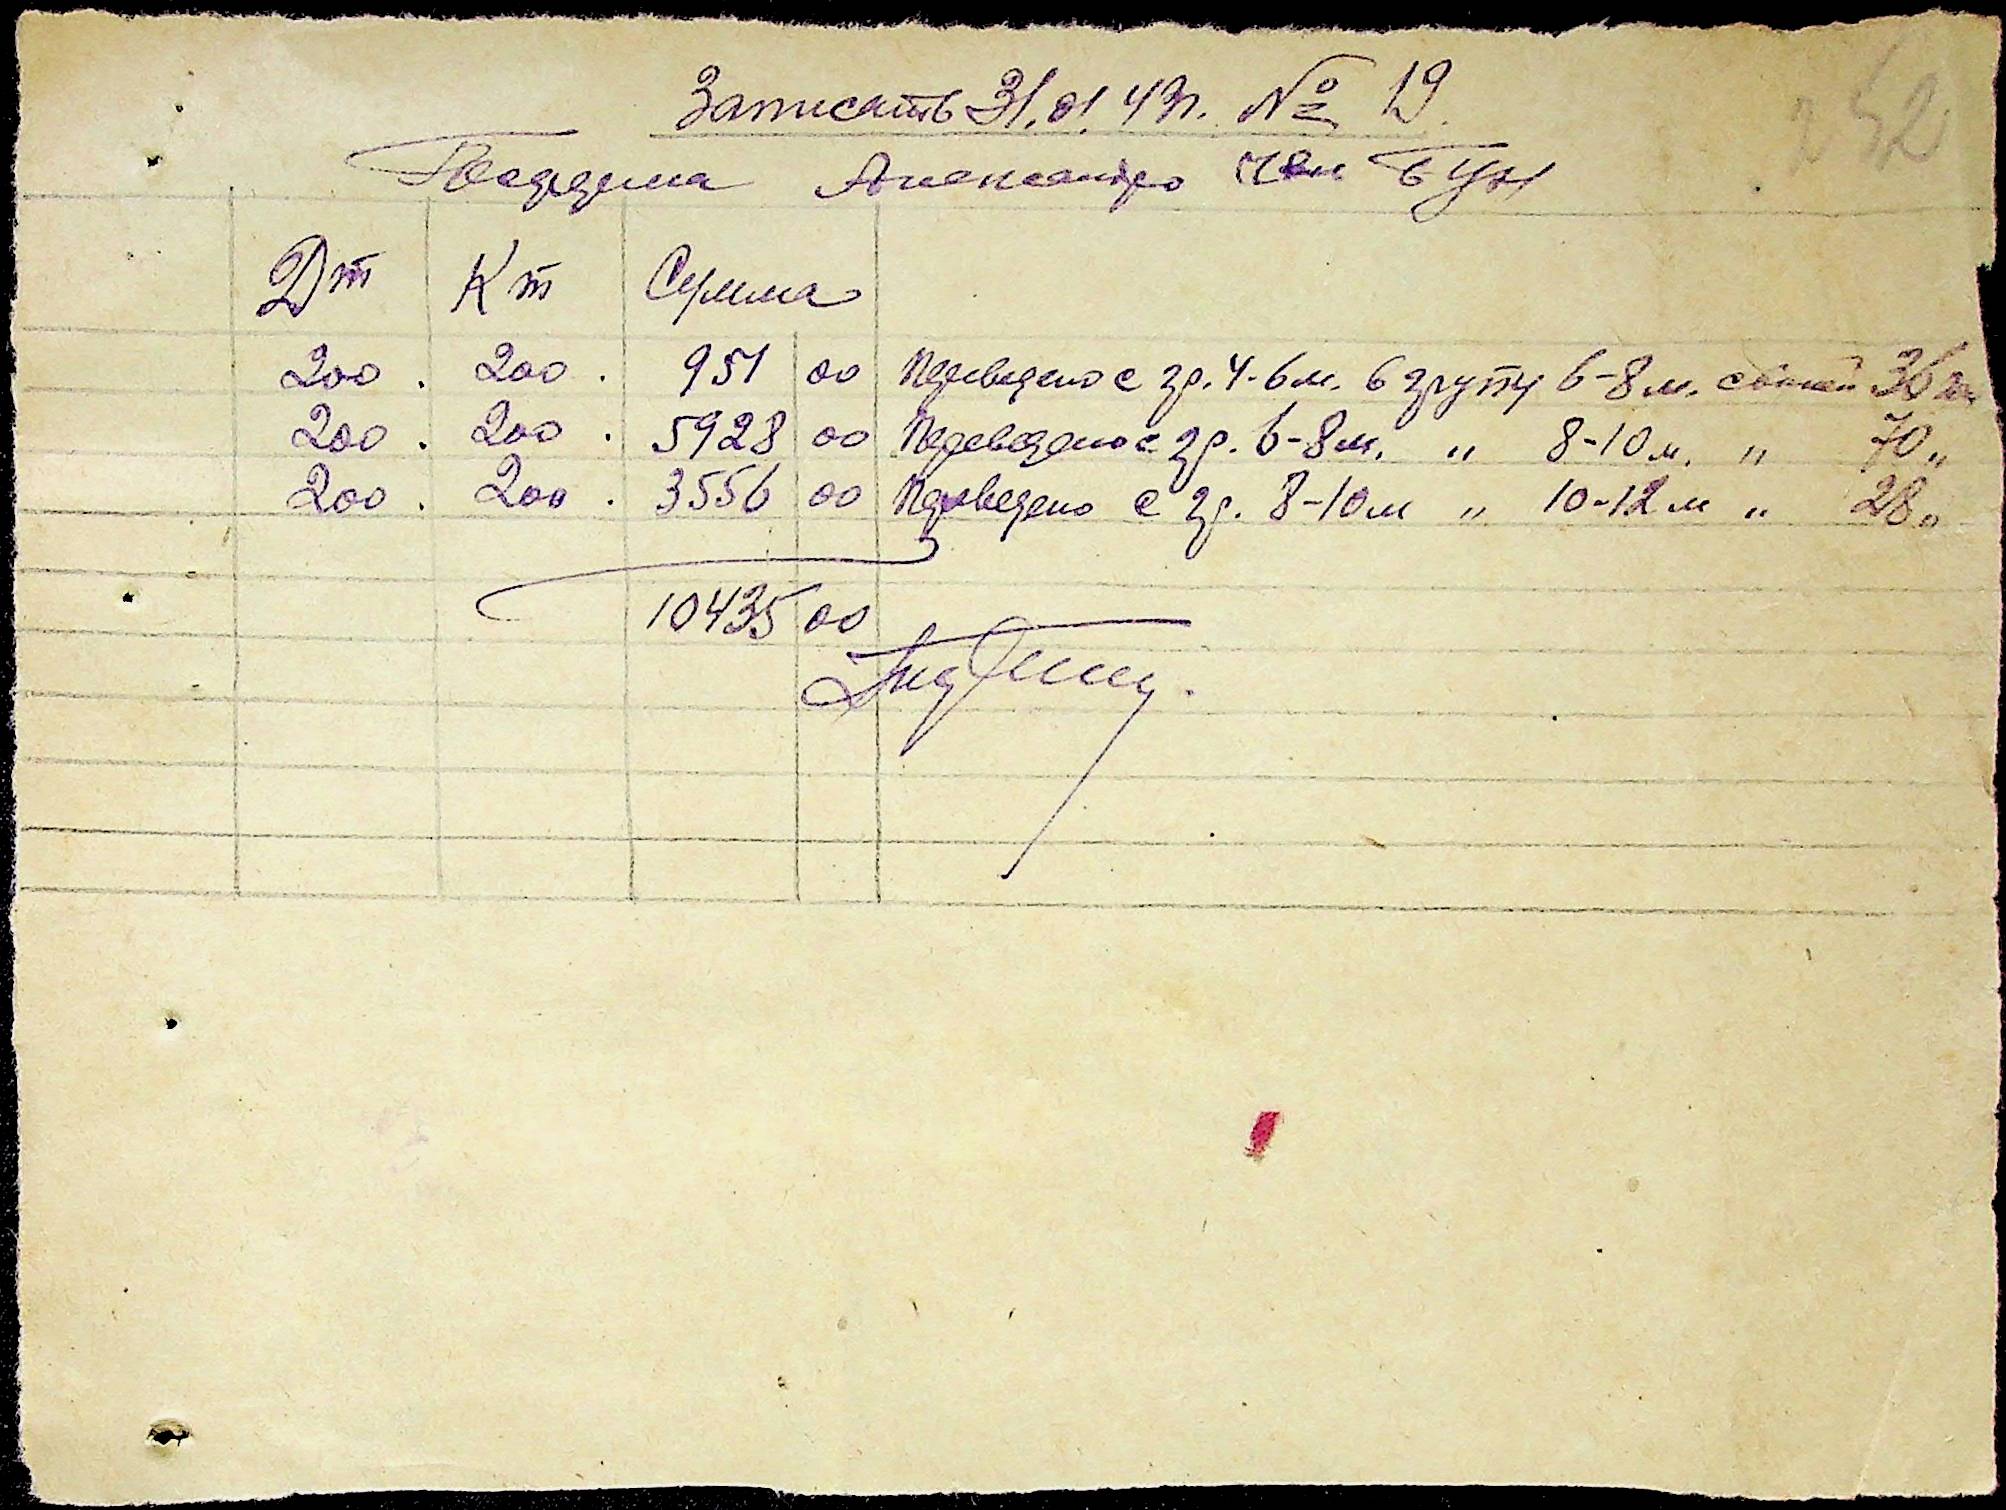 252
Записать 31.01.43г. № 19.
Александро
Дт Кт Сумма
200. 200. 951 00 Переведено с гр. 4-6м. в групу 6-8м. свиней 36 гол
200. 200. 5928 00 Переведено с гр. 6-8м. „ 8-10м. „ 70„
200. 200. 3556 00 Переведено с гр. 8-10м „ 10-12м „ 28„
10435 00